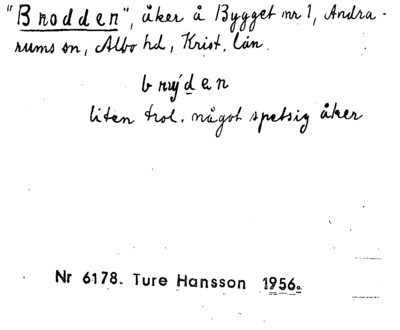 "Brodden", åker å Bygget nr 1, Andra-
rums sn, Albo hd, Krist. län.
liten trol. något spetsig åker
Nr 6178. Ture Hansson 1956.